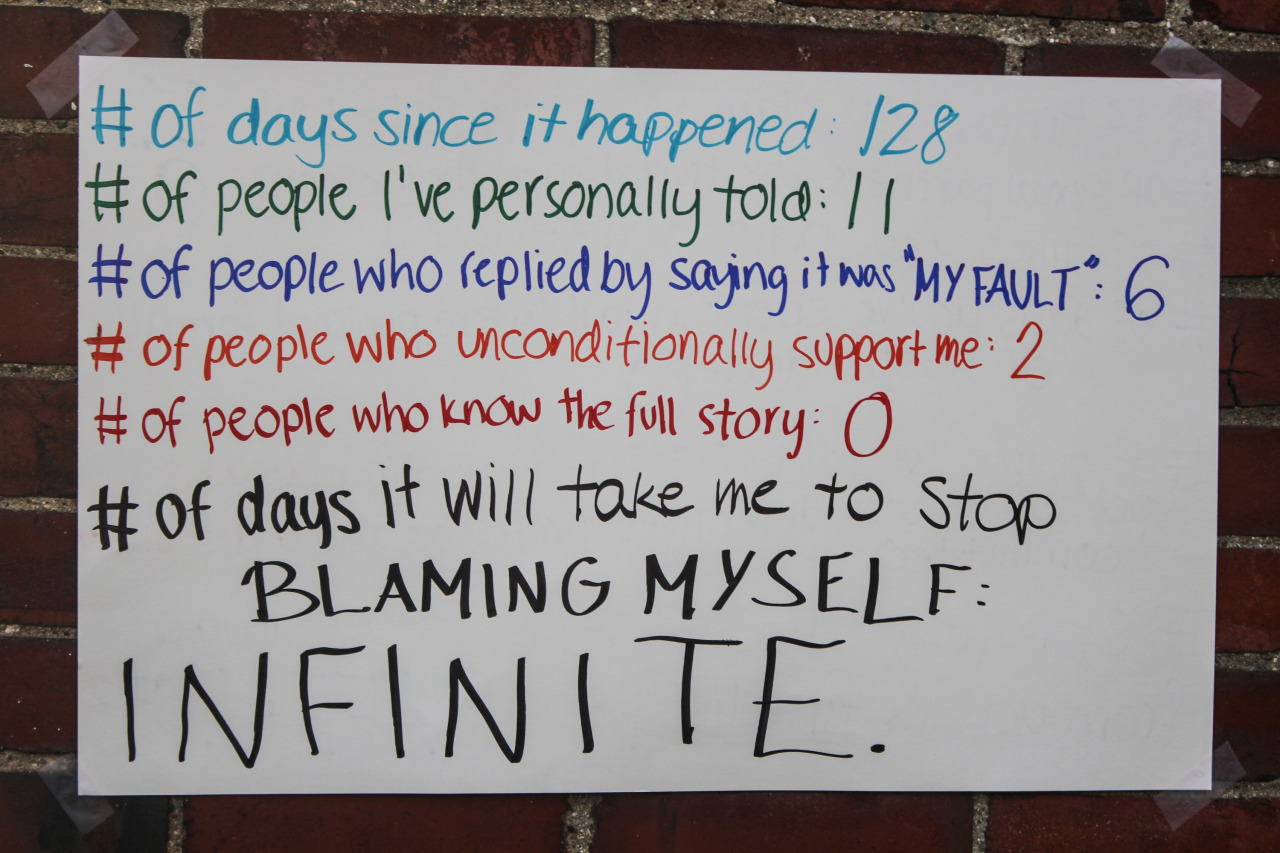 # of days since it happened: 128
# of people I've personally told: 11
# of people who replied by saying it was "MY FAULT": 6
# of people who unconditionally support me: 2
# of people who know the full story: 0
# of days it will take me to stop
BLAMING MYSELF:
INFINITE.